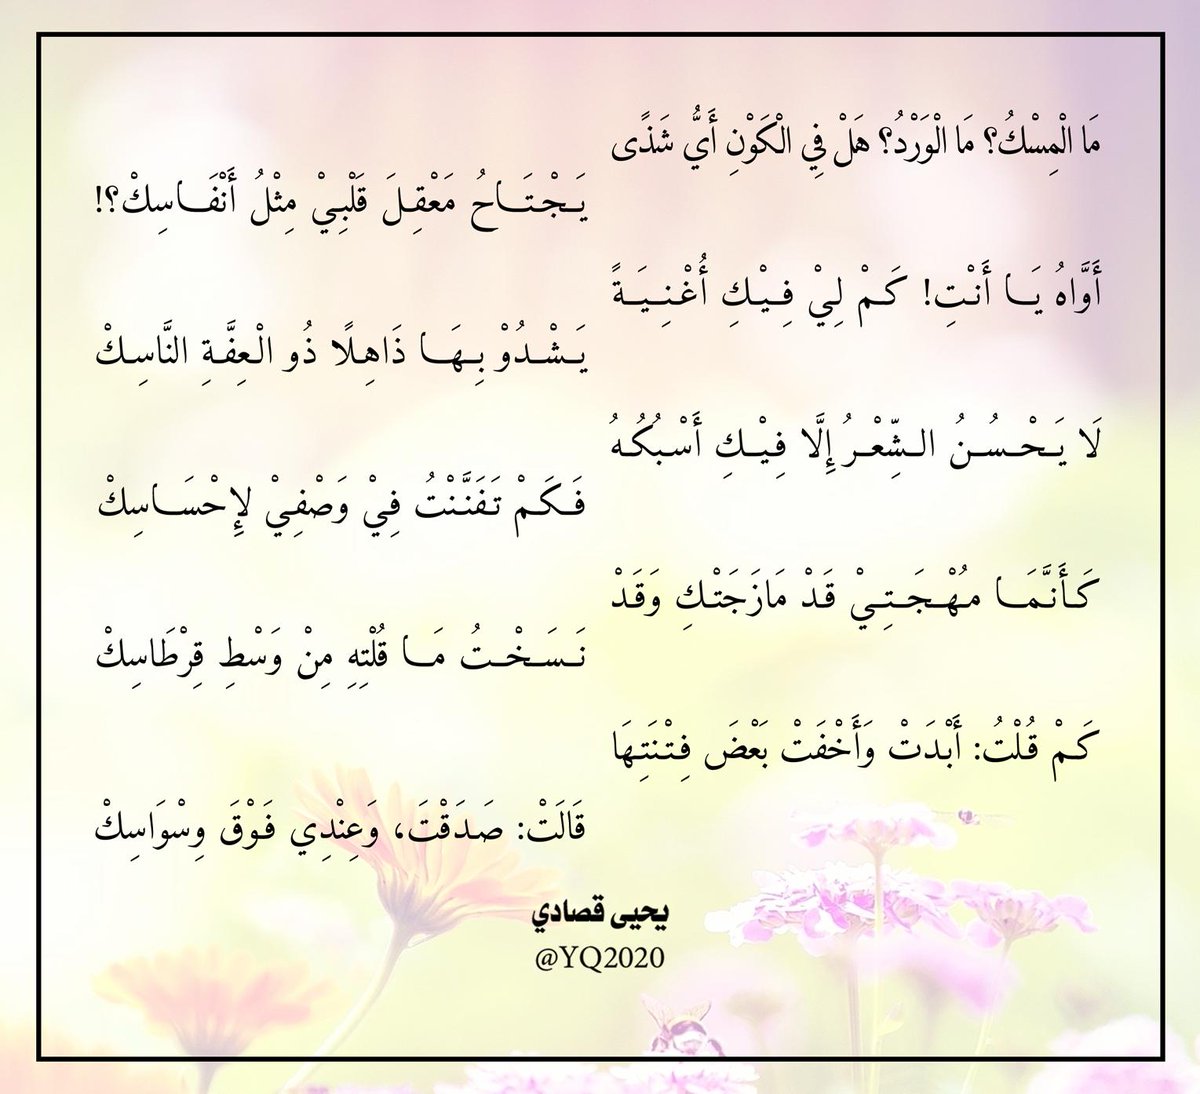 مَا الْمِسْكُ؟ مَا الْوَرْدُ؟ هَلْ فِي الْكَوْنِ أَيُّ شَذًى
يَجْتَاحُ مَعْقِلَ قَلْبِيْ مِثْلُ أَنْفَاسِكْ؟!
أَوَّاهُ يَا أَنْتِ! كَمْ لِيْ فِيْكِ أُغْنِيَةً
يَشْدُوْ بِهَا ذَاهِلًا ذُو الْعِفَّةِ النَّاسِكْ
لَا يَحْسُنُ الشِّعْرُ إِلَّا فِيْكِ أَسْبُكُهُ
فَكَمْ تَفَنَّنْتُ فِيْ وَصْفِيْ لِإِحْسَاسِكْ
كَأَنَّمَا مُهْجَتِيْ قَدْ مَازَجَتْكِ وَقَدْ
نَسَخْتُ مَا قُلْتِهِ مِنْ وَسْطِ قِرْطَاسِكْ
كَمْ قُلْتُ: أَبْدَتْ وَأَخْفَتْ بَعْضَ فِتْنَتِهَا
قَالَتْ: صَدَقْتَ، وَعِنْدِي فَوْقَ وِسْوَاسِكْ
يحيى قصادي
@YQ2020